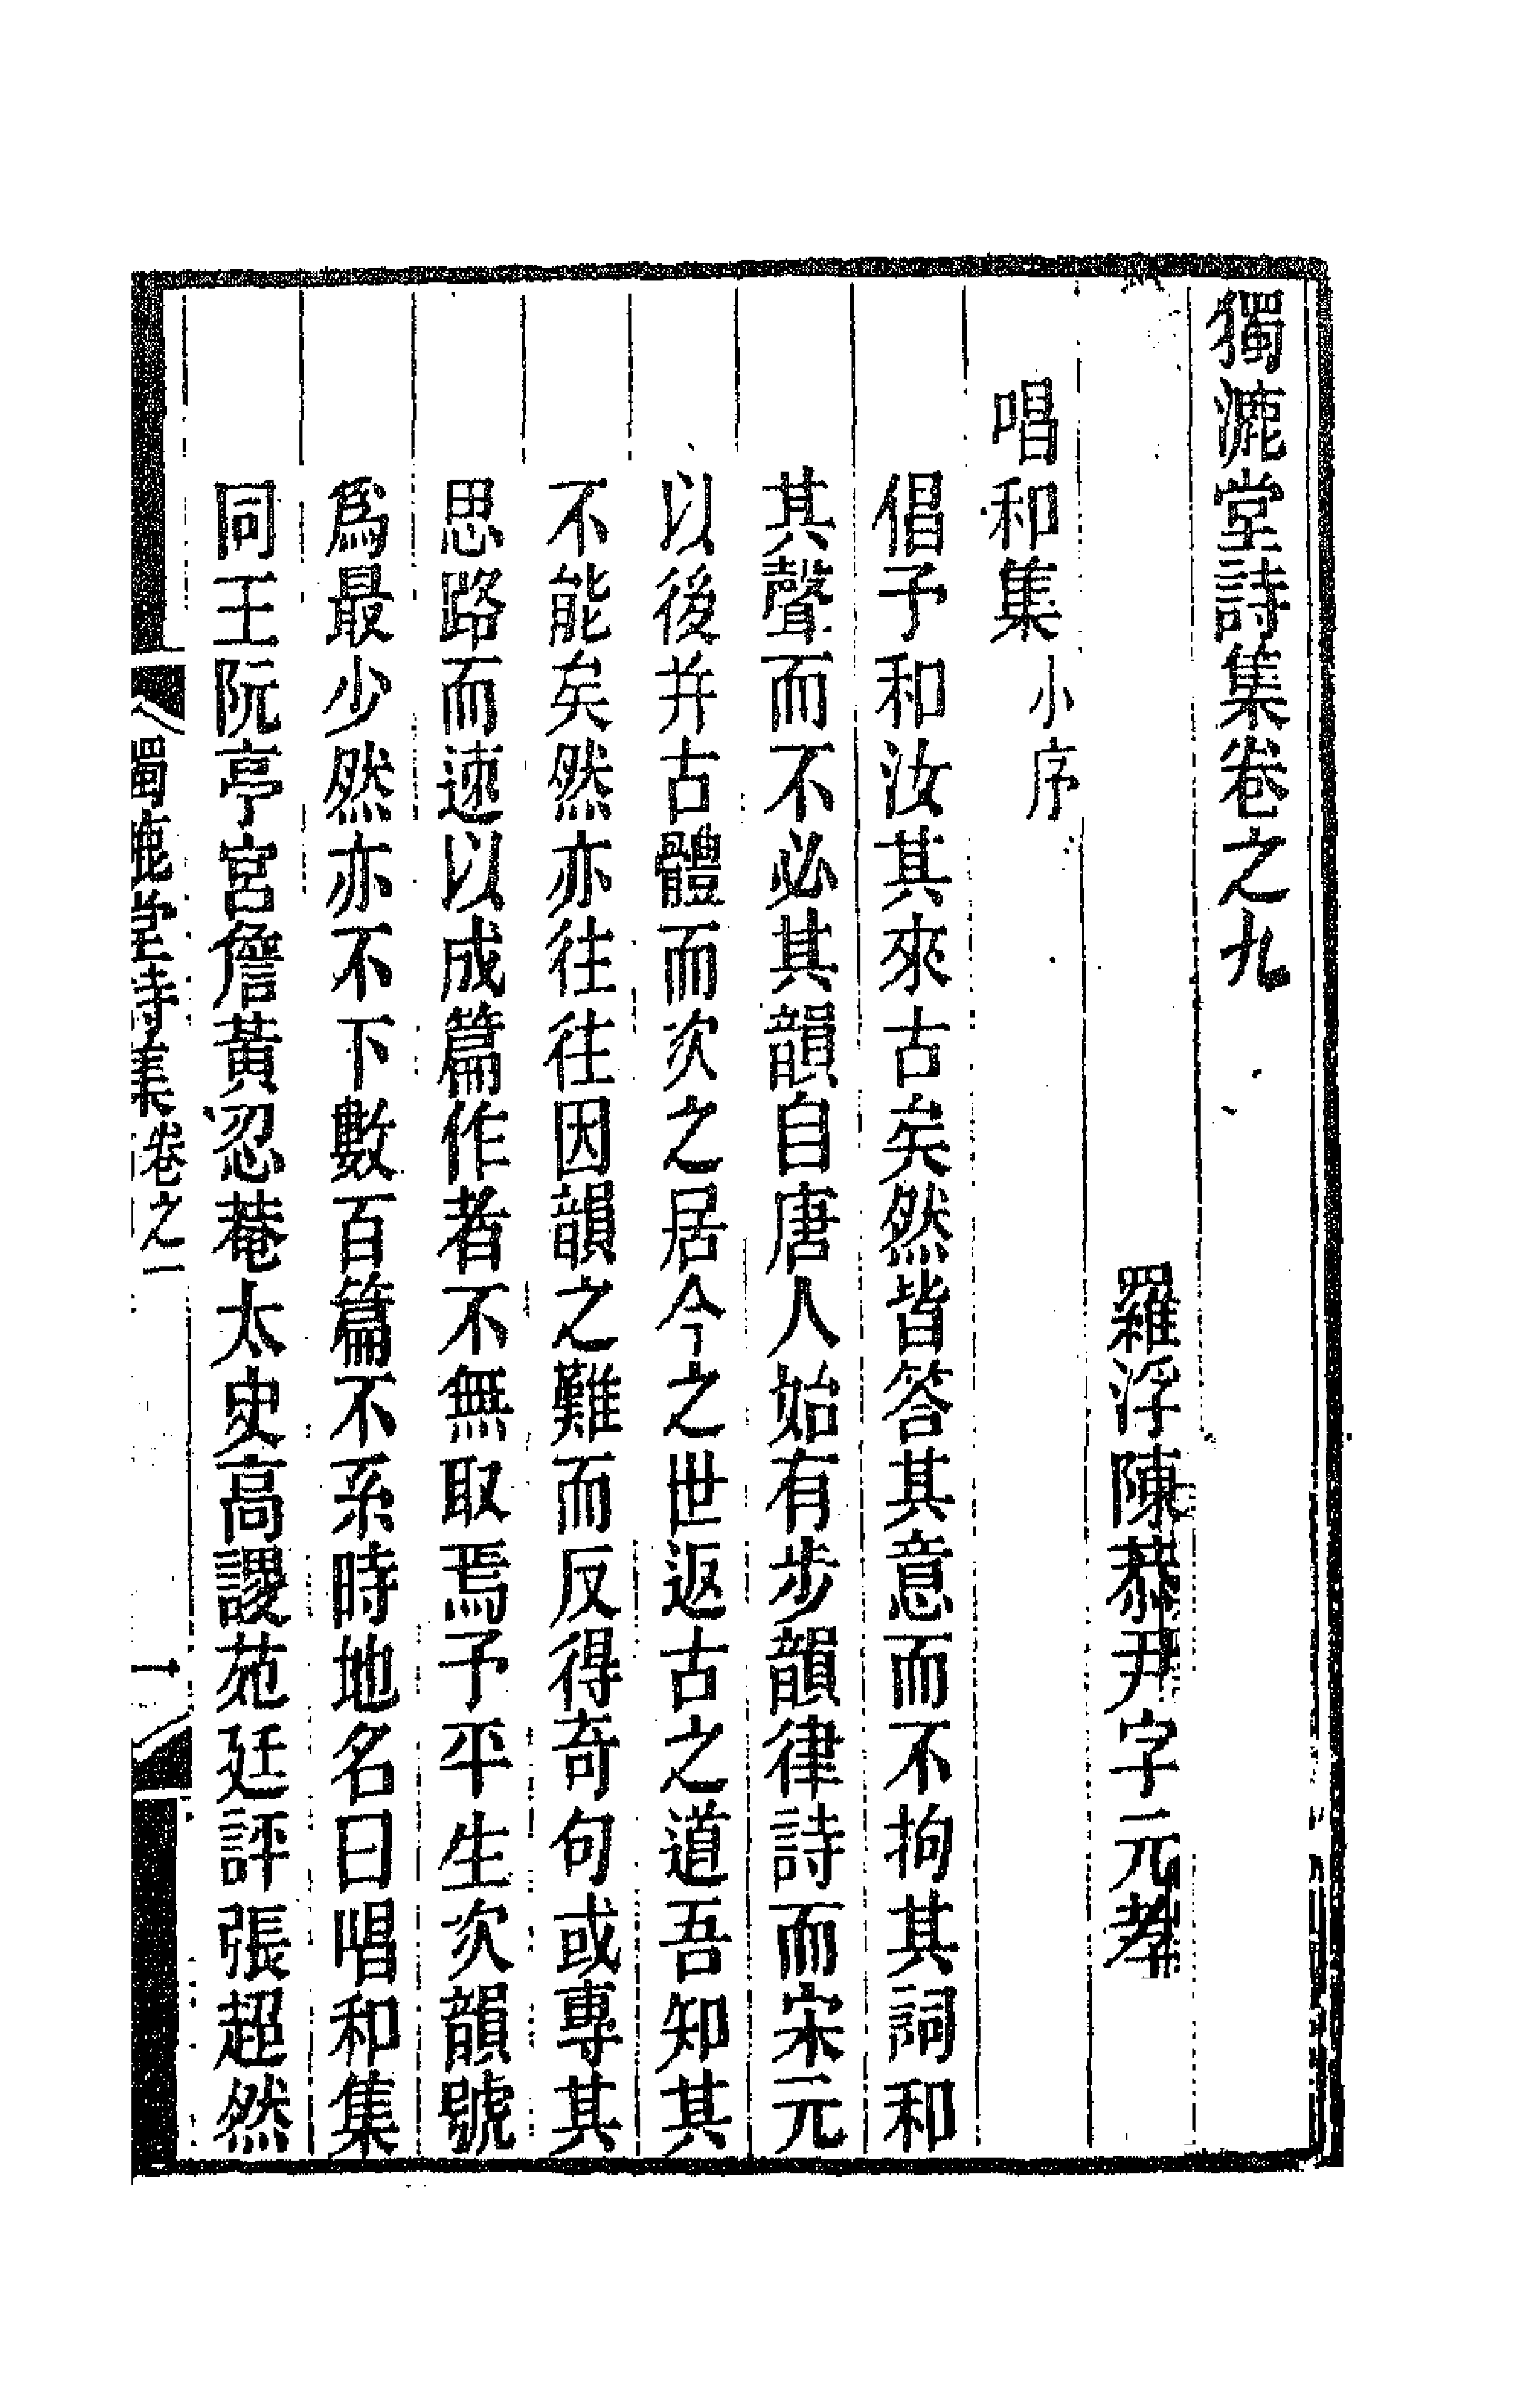 獨漉堂詩集卷之九
羅浮陳恭尹字元孝
唱和集小序
倡予和汝其來古矣然皆答其意而不拘其詞和
其聲而不必其韻自唐人始有步韻律詩而宋元
以後并古體而次之居今之世返古之道吾知其
不能矣然亦往往因韻之難而反得奇句或專其
思路而速以成篇作者不無取焉予平生次韻號
爲最少然亦不下數百篇不系時地名曰唱和集
同王阮亭宮詹黃忍菴太史高謖苑廷評張超然
獨漉堂詩集卷之一
一